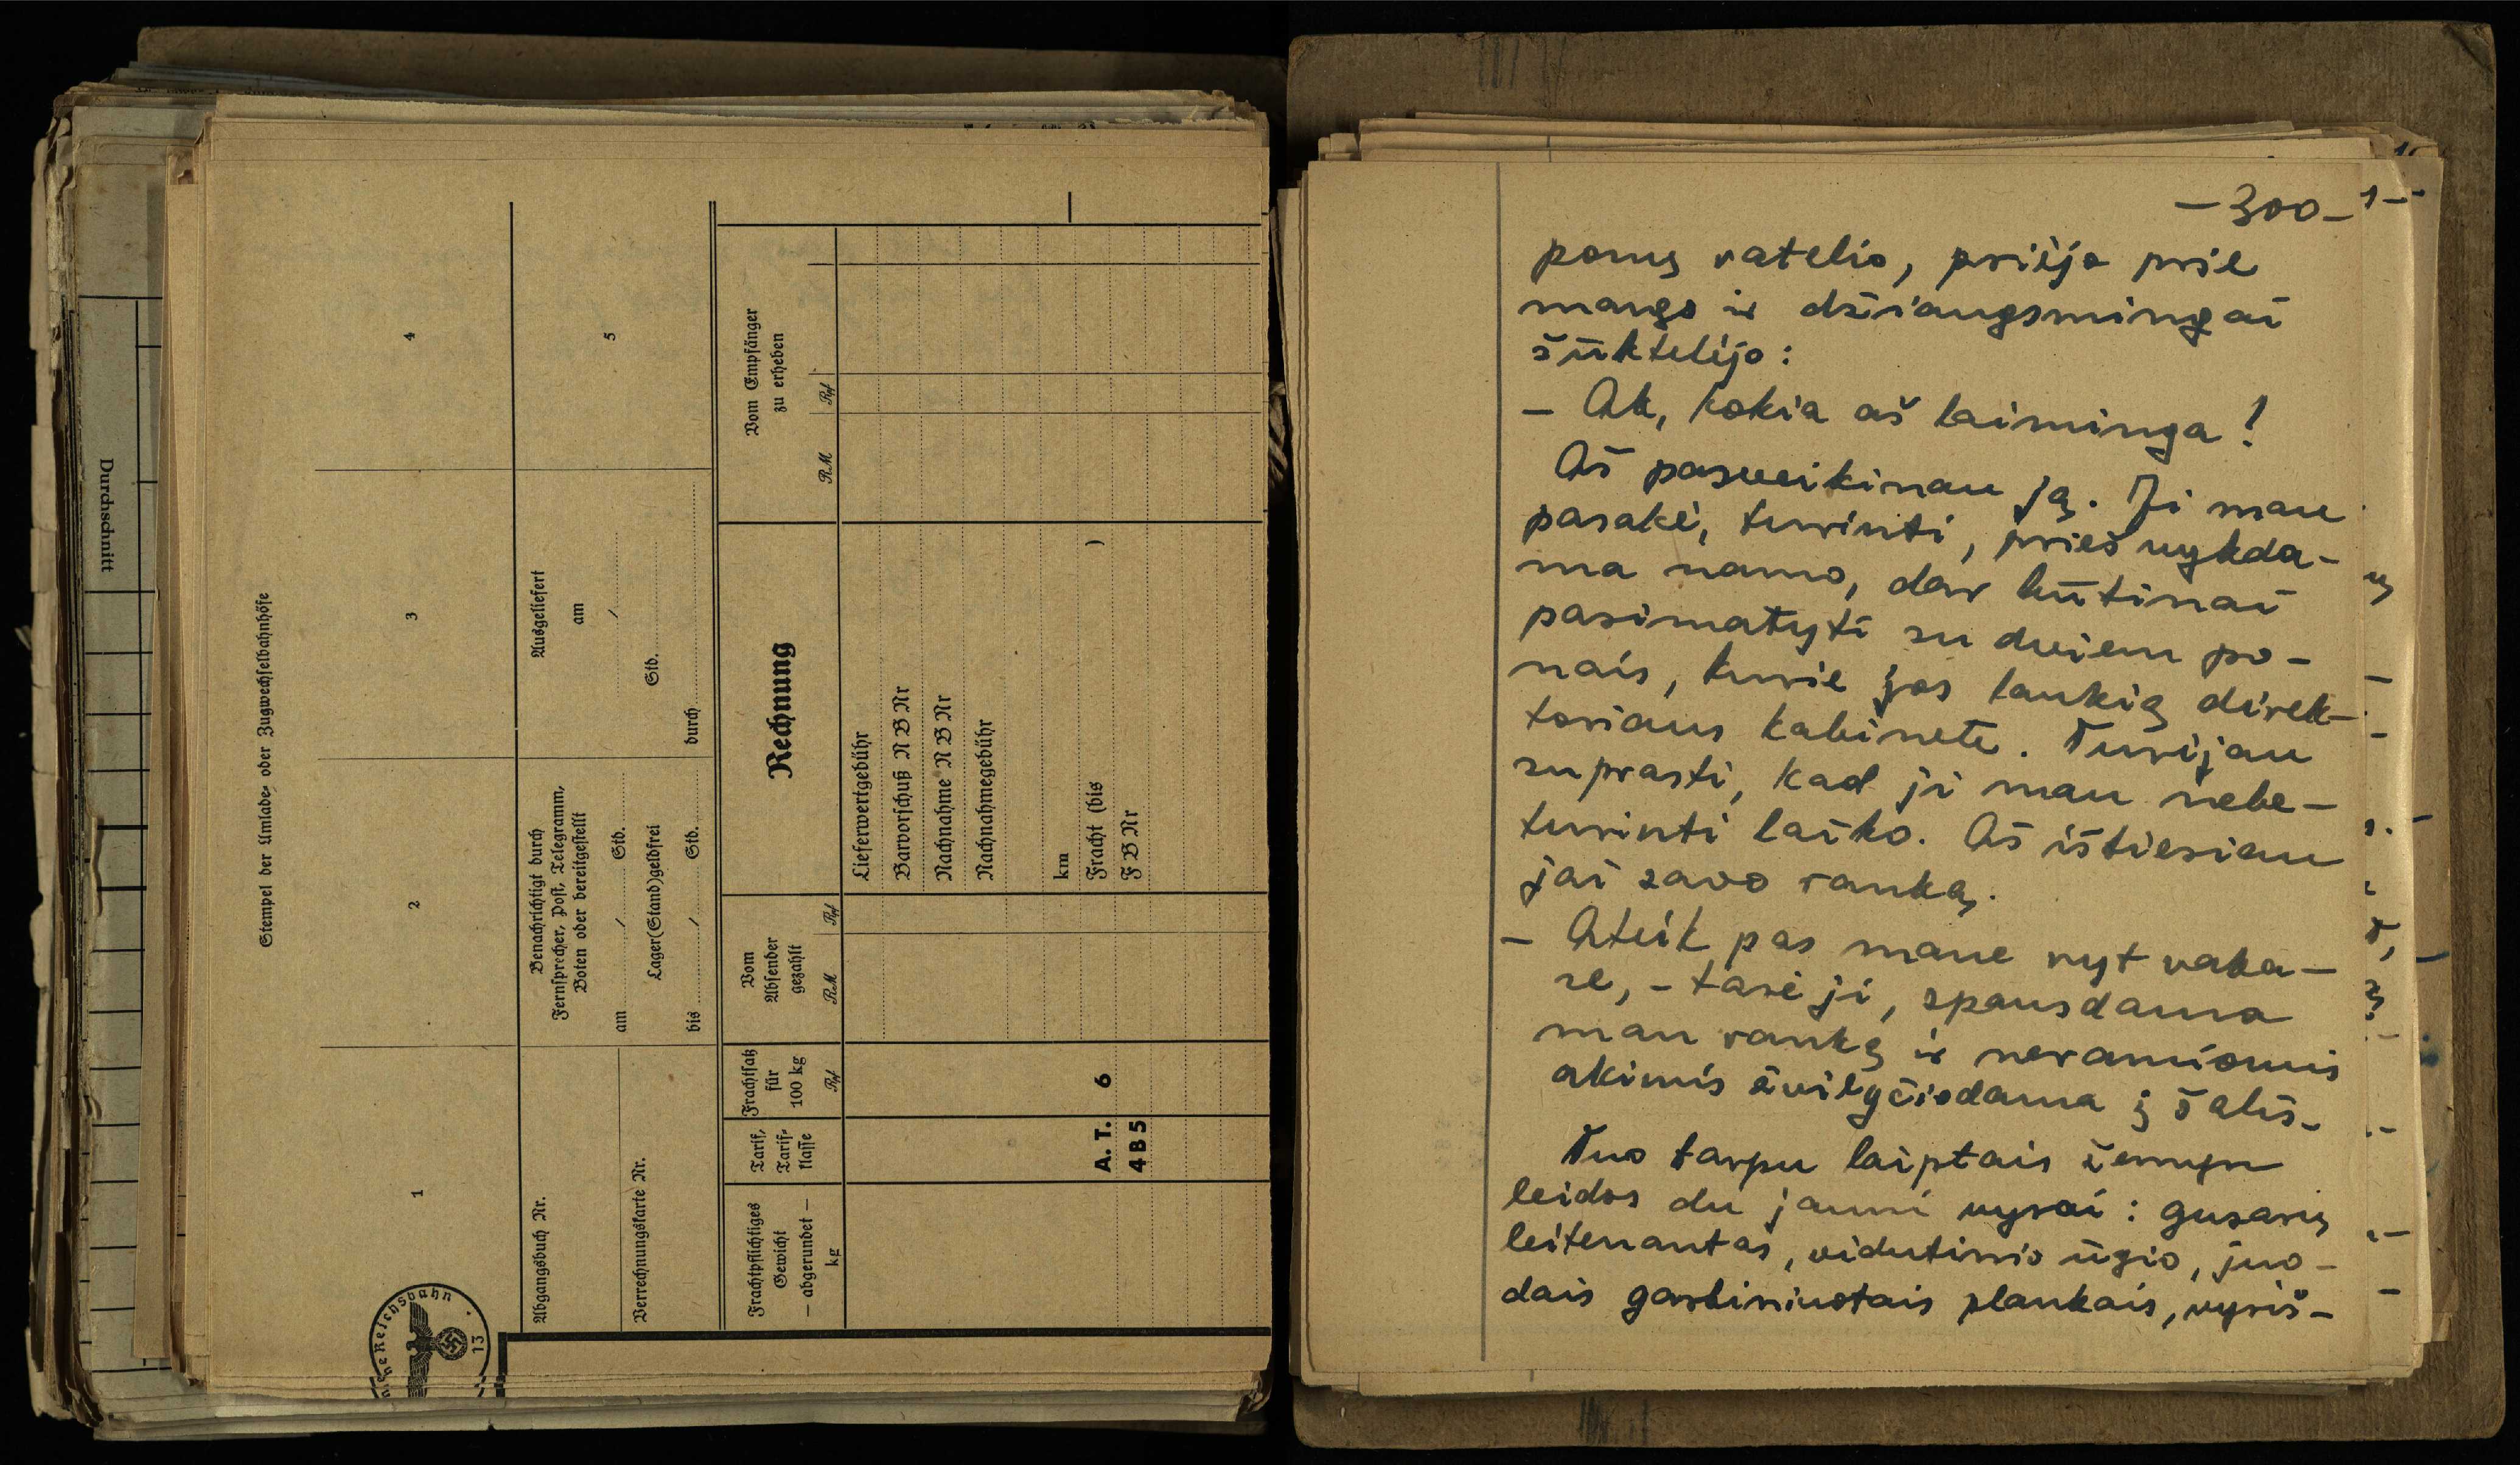 Durchschnitt
Stempel der Umlade- oder Zugwechselbahnhöfe
1
2
3
4
Abgangsbuch Nr.
Verrechnungskarte Nr.
Benachrichtigt durch
Fernsprecher, Post, Telegramm,
Boten oder bereitgestellt
am / Std.
Lager(Stand)geldfrei
bis / Std.
Ausgeliefert
am
/
Std.
durch
5
Frachtpflichtiges
Gewicht
— abgerundet —
kg
Tarif,
Tarif-
klasse
Frachtsatz
für
100 kg
Rpf
Vom
Absender
gezahlt
RM Rpf
Rechnung
Vom Empfänger
zu erheben
RM Rpf
Lieferwertgebühr
Barvorschuß N B Nr
Nachnahme N B Nr
Nachnahmegebühr
km
A. T. 6 Fracht (bis )
4 B 5 F B Nr
Reichsbahn
13
— 300 —
ponų ratelio, priėjo prie
manęs ir džiaugsmingai
šūktelėjo:
— Ak, kokia aš laiminga!
Aš pasveikinau ją. Ji man
pasakė, turinti, prieš vykda-
ma namo, dar būtinai
pasimatyti su dviem po-
nais, kurie jos laukią direk-
toriaus kabinete. Turėjau
suprasti, kad ji man nebe-
turinti laiko. Aš ištiesiau
jai savo ranką.
— Ateik pas mane ryt vaka-
re, - tarė ji, spausdama
man ranką ir neramiomis
akimis žvilgčiodama į šalis.
Tuo tarpu laiptais žemyn
leidos du jauni vyrai: gusarų
leitenantas, vidutinio ūgio, juo-
dais garbiniuotais plaukais, vyriš-